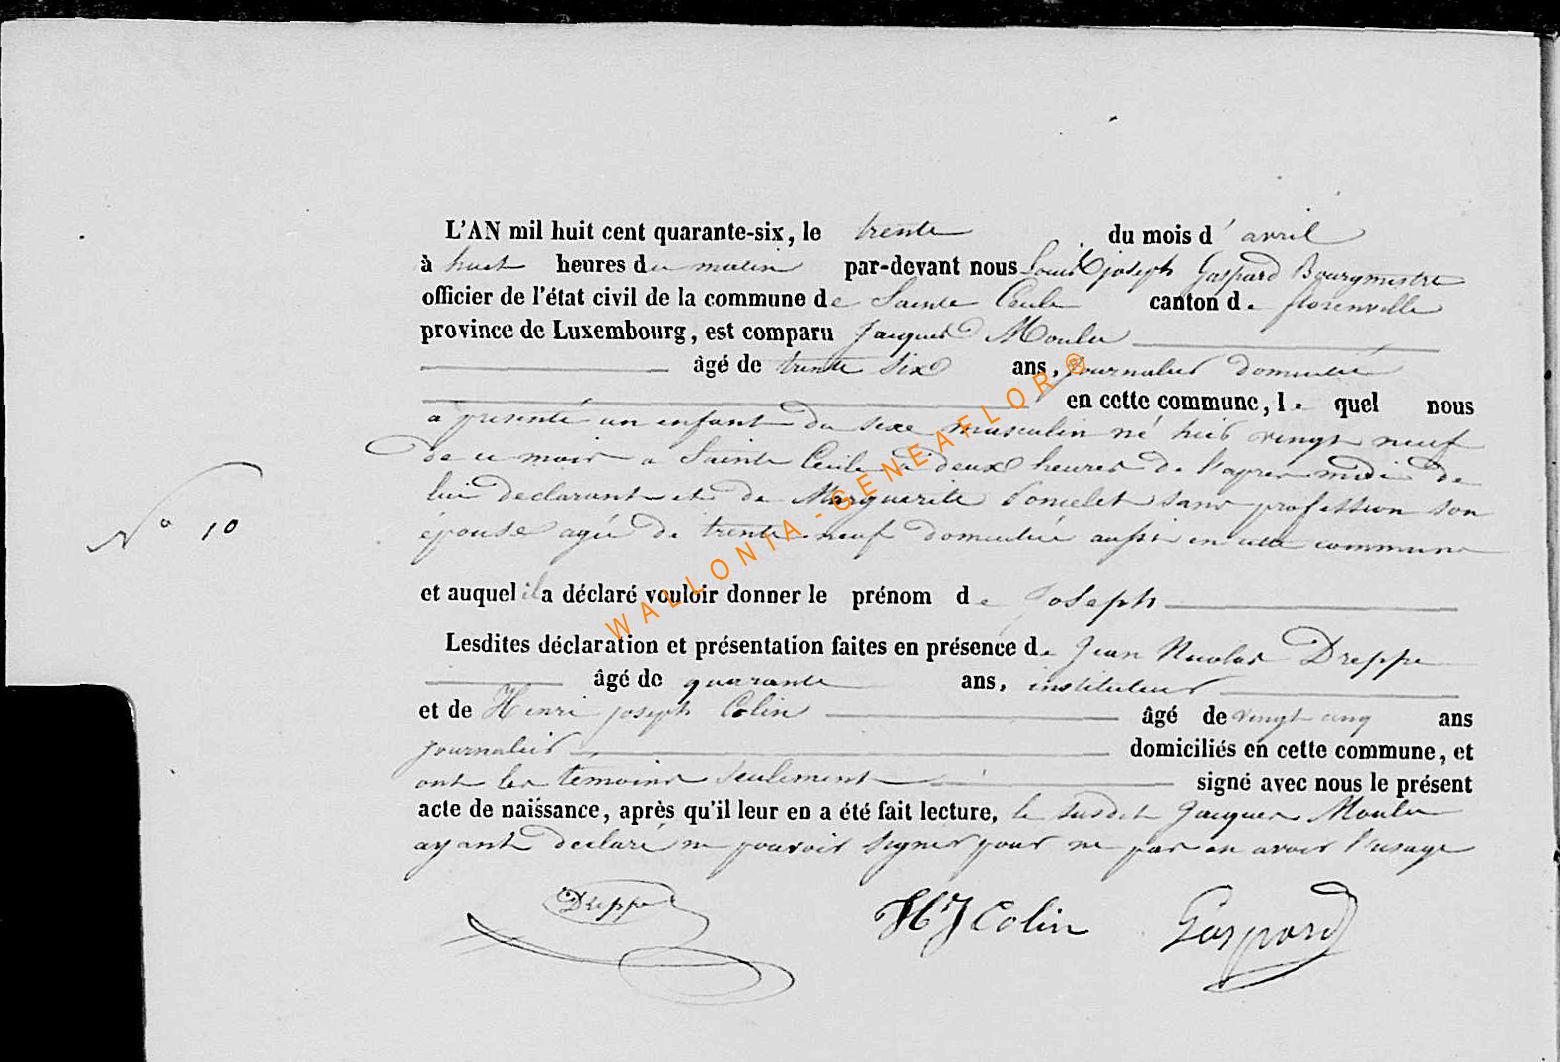 L'AN mil huit cent quarante-six, le trente du mois d' avril
à huit heures du matin par-devant nous Louis joseph Gaspard Bourgmestre
officier de l'état civil de la commune de Sainte Cecile canton de florenville
province de Luxembourg, est comparu Jacques Moulu
âgé de trente six ans, journalier domicilié
en cette commune, le quel nous
a présenté un enfant du sexe masculin né hier vingt neuf
de ce mois a Sainte Cecile a deux heures de l'apres midi de
lui declarant et de Marguerite Poncelet sans profession son
N° 10
épouse agée de trente neuf domiciliée aussi en cette commune
et auquel il a déclaré vouloir donner le prénom de Joseph
Lesdites déclaration et présentation faites en présence de Jean Nicolas Dreppe
âgé de quarante ans, instituteur
et de Henri joseph Colin âgé de vingt cinq ans
journalier domiciliés en cette commune, et
ont les témoins seulement signé avec nous le présent
acte de naissance, après qu'il leur en a été fait lecture, le susdit Jacques Moulu
ayant declaré ne pouvoir signer pour ne pas en avoir l'usage
Dreppe HrJ Colin Gaspard
WALLONIA-GENEAFLOR®